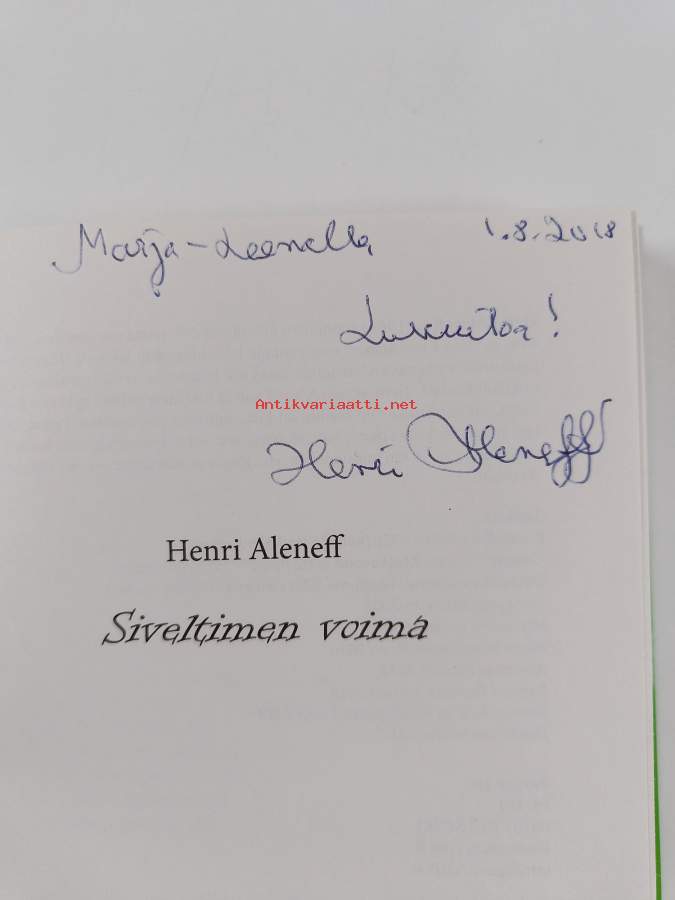 Marja-Leenalla 1.8.2018
Lukuiloa!
Antikvariaatti.net
Henri Aleneff
Henri Aleneff
Siveltimen voima